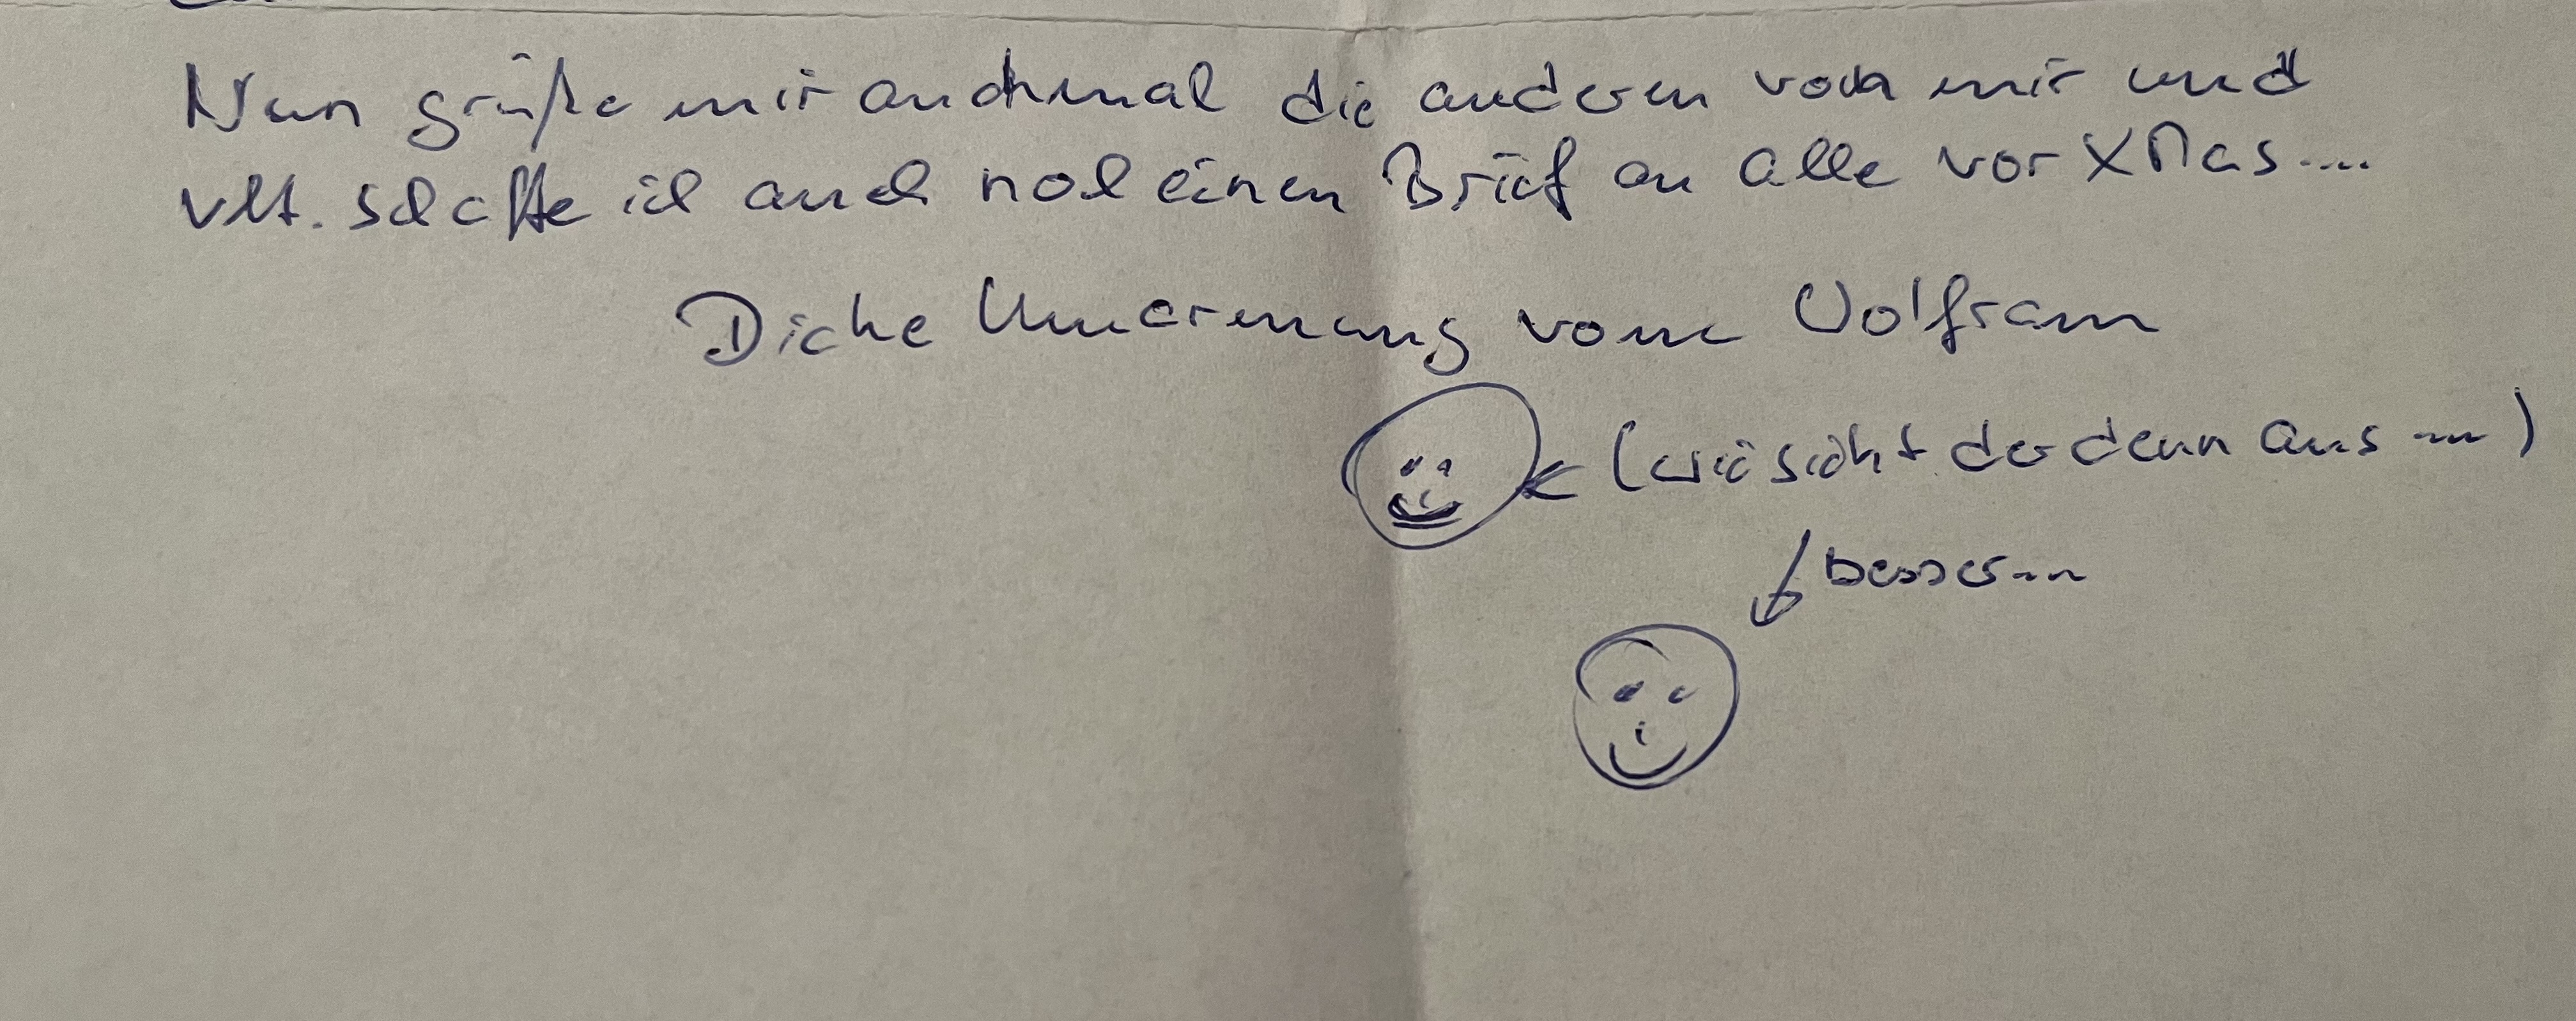 Nun grüße mir auchmal die anderen von mir und
vllt. schaffe ich auch noch einen Brief an alle vor XMas....
Dicke Umarmung vom Wolfram
(wie sieht der denn aus ...)
besser...